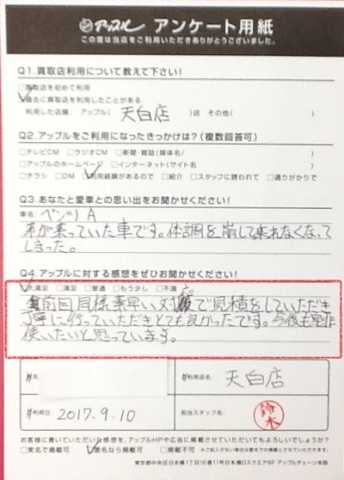 アップル アンケート用紙
この度は当店をご利用いただきありがとうございました。
Q1.買取店利用について教えて下さい!
□買取店を初めて利用
過去に買取店を利用したことがある
利用した店舗 アップル( 天白店 )店 その他( )
Q2.アップルをご利用になったきっかけは?(複数回答可)
□テレビCM □ラジオCM □新聞・雑誌(媒体名/ )
□アップルのホームページ □インターネット(サイト名 )
□チラシ □DM 利用経験があるので □紹介 □スタッフに誘われて □通りがかりで
Q3.あなたと愛車との思い出をお聞かせください!
車名: ベンツ A
が乗っていた車です。体調を崩して乗れなくなって
しまった。
Q4.アップルに対する感想をぜひお聞かせください!
大満足 □満足 □普通 □もう少し □不満
前回同様素早い対応で見積をしていただき
丁寧に行っていただきとても良かったです。今後も是非
使いたいと思っています。
■利用店名: 天白店
■利用日: 2017.9.10
担当スタッフ名: 鈴木
お客様に書いていただいた感想を、アップルHPや広告に掲載させていただいてもよろしいでしょうか?
□実名で掲載可 匿名なら掲載可 □不可
東京都中央区日本橋1丁目16番11号日本橋DスクエアBF アップルチェーン本部